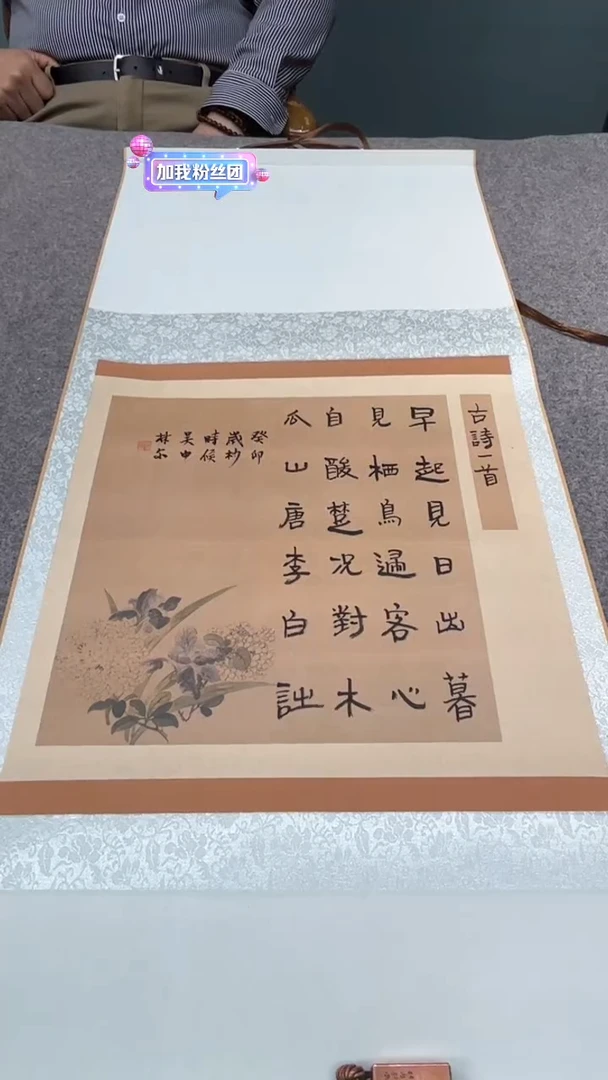 加我粉丝团
古詩一首
早起見日出暮
見栖鳥還客心
自酸楚况對木
瓜山唐李白詩
癸卯
歲杪
時候
吴中
林尔